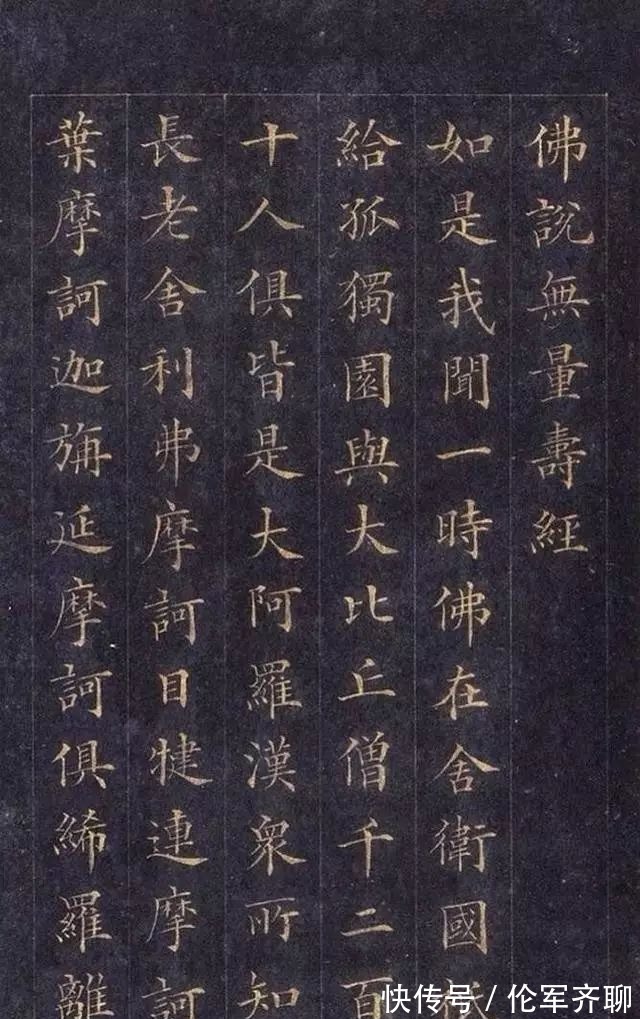 佛說無量壽經
如是我聞一時佛在舍衛國祇
給孤獨園與大比丘僧千二百
十人俱皆是大阿羅漢衆所知
長老舍利弗摩訶目犍連摩訶
葉摩訶迦旃延摩訶俱絺羅離
快传号 / 伦军齐聊